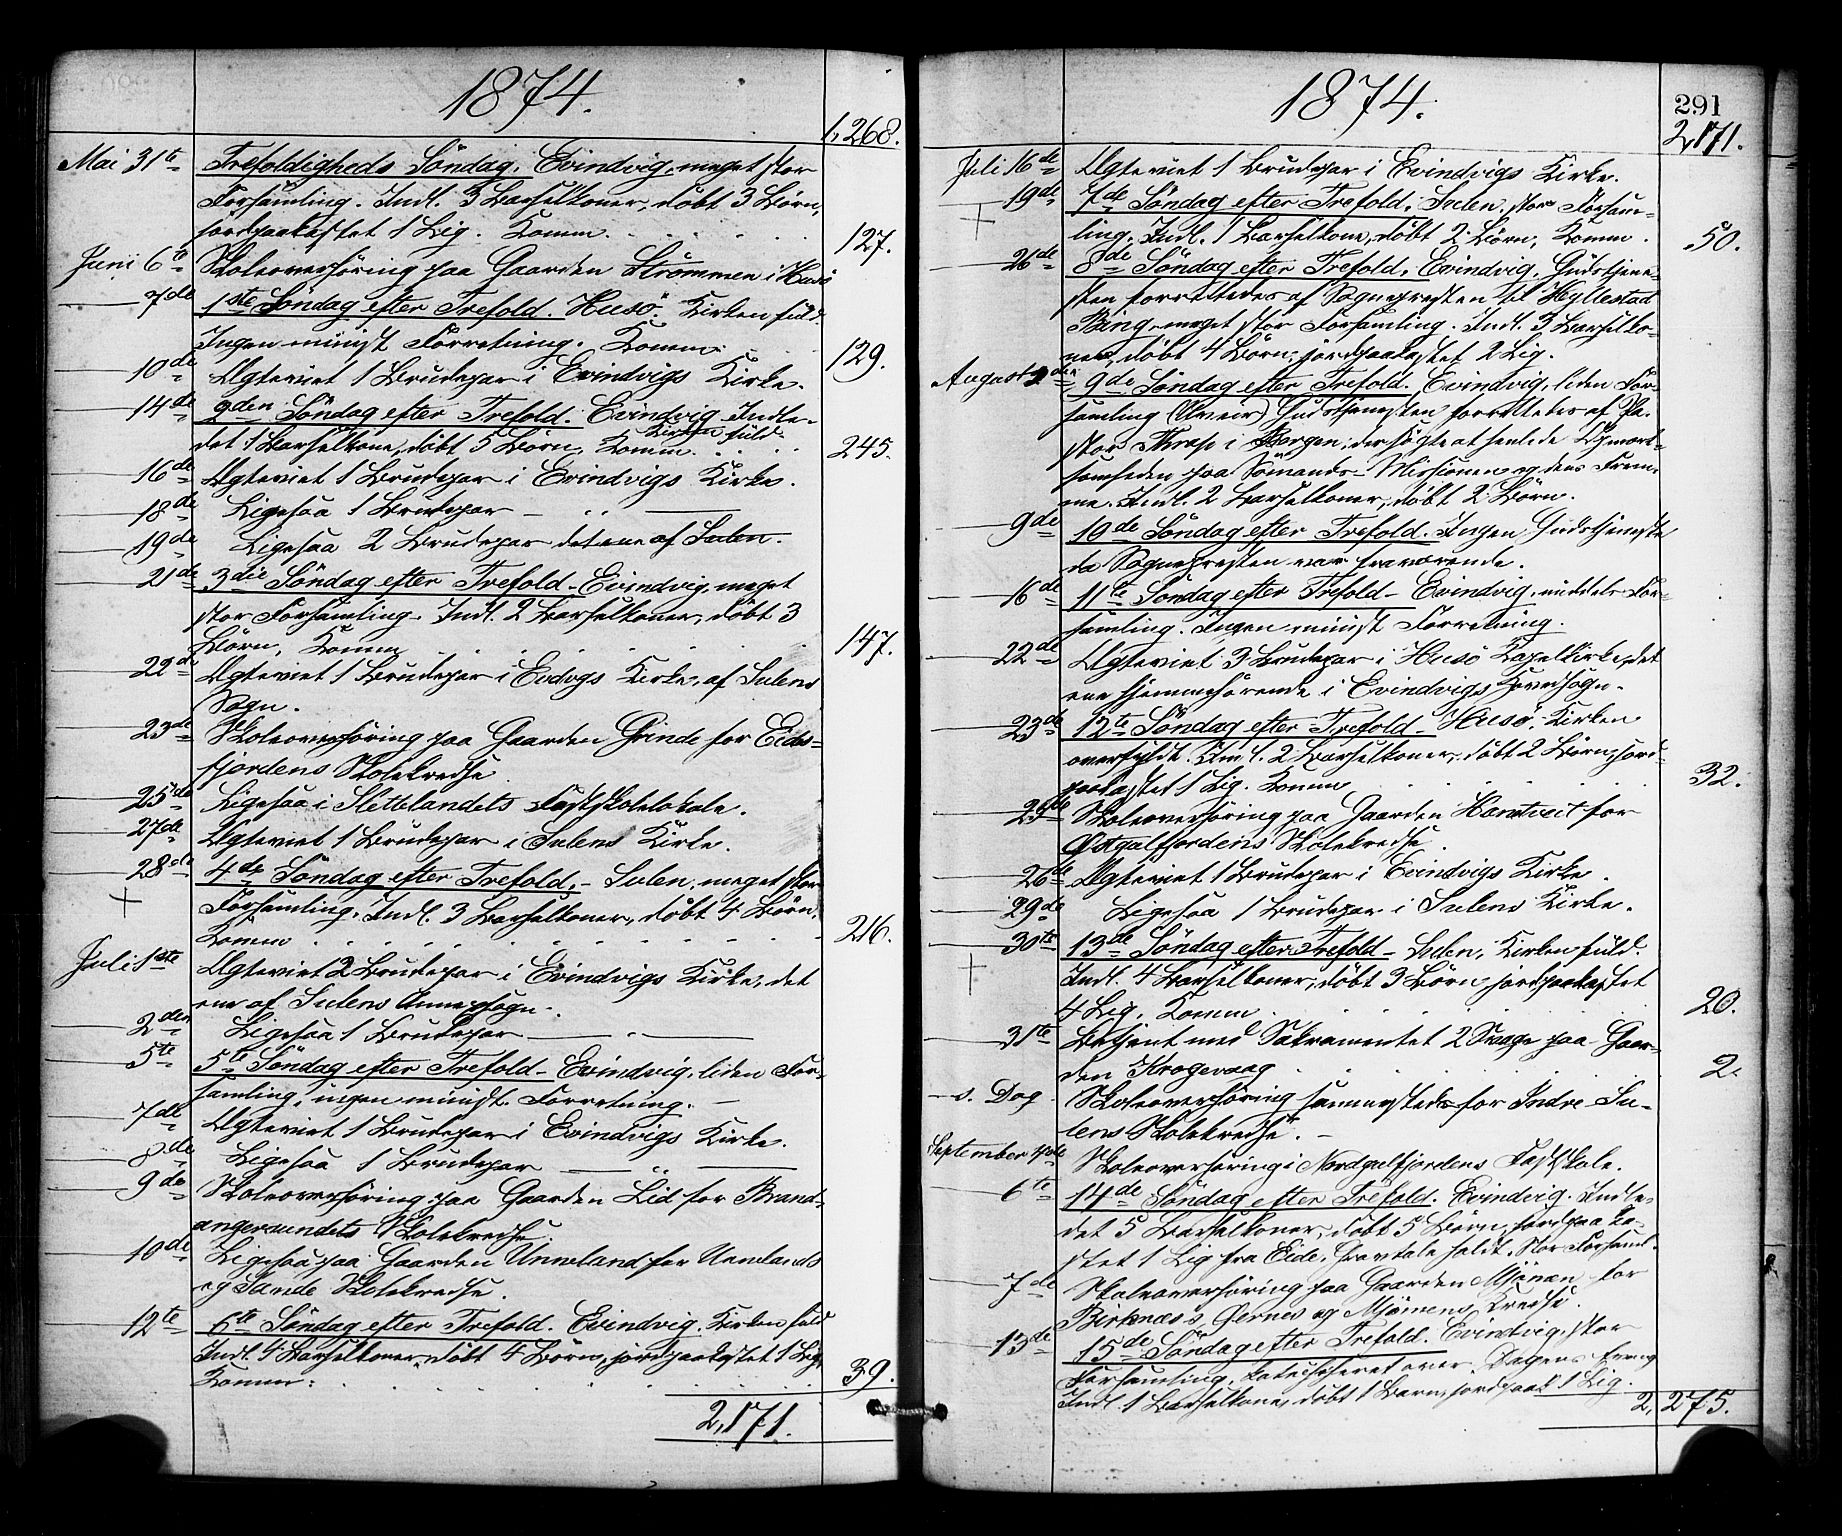 1874.
1,268.
Mai 31te Trefoldigheds Söndag. Evindvig, meget stor
Forsamling. Indl. 3 Barselkoner, döbt 3 Börn,
jordpaakastet 1 Lig. Komm. 127.
Juni 6te Skoleoverhöring paa Gaarden Strömmen i Husö
7de 1ste Söndag efter Trefold. Husö. Kirken fuld.
Ingen mindst Forretning. Komm. 129.
10de Ægteviet 1 Brudepar i Evindvigs Kirke.
14de 2den Söndag efter Trefold. Evindvig. Indle-
Kirken fuld.
det 1 Barselkone, döbt 5 Börn, Komm. 245.
16de Ægteviet 1 Brudepar i Evindvigs Kirke.
18de Ligesaa 1 Brudepar — „ —
19de Ligesaa 2 Brudepar det ene af Sulen.
21de 3die Söndag efter Trefold. Evindvig, meget
stor Forsamling. Indl. 2 Barselkoner, döbt 3
Börn, Komm. 147.
22de Ægteviet 1 Brudepar i Evdvgs Kirke, af Sulens
Sogn.
23de Skoleoverhöring paa Gaarden Grinde for Eids-
fjordens Skolekredse.
25de Ligesaa i Slettelandets Fastskolelokale.
27de Ægteviet 1 Brudepar i Sulens Kirke.
28de 4de Söndag efter Trefold. - Sulen, meget stor
+ Forsamling. Indl. 3 Barselkoner, döbt 4 Börn.
Komm 216.
Juli 1ste Ægteviet 2 Brudepar i Evindvigs Kirke, det
ene af Sulens Annexsogn.
2den Ligesaa 1 Brudepar — „ —
5te 5te Söndag efter Trefold - Evindvig, liden For-
samling, ingen mindst. Forretning. —
7de Ægteviet 1 Brudepar i Evindvigs Kirke.
8de Ligesaa 1 Brudepar — „ —
9de Skoleoverhöring paa Gaarden Lid for Brand-
angersundets Skolekredse.
10de Ligesaa paa Gaarden Unneland for Unnelands
og Sande Skolekredse.
12te 6te Söndag efter Trefold. Evindvig. Kirken fuld
Indl. 4 Barselkoner, döbt 4 Börn, jordpaakastet 1 Lig,
Komm: 39.
2,171.
1874.
291
2,171.
Juli 16de Ægteviet 1 Brudepar i Evindvigs Kirke.
19de 7de Söndag efter Trefold. Sulen, stor Forsam-
+ ling. Indl. 1 Barselkone, döbt 2 Börn, Komm. 50.
26de 8de Söndag efter Trefold. Evindvig. Gudstjene-
sten forrettedes af Sognepresten til Hyllestad
Bing, meget stor Forsamling. Indl. 3 Barselko-
ner, döbt 4 Börn, jordpaakastet 2 Lig.
August 2den 9de Söndag efter Trefold. Evindvig, liden For-
samling (Uveir) Gudstjenesten forrettedes af Pa-
stor Thrap i Bergen, der sögte at henlede Opmærk-
somheden paa Sömands-Missionen og dens Frem-
me. Indl. 2 Barselkoner, döbt 2 Börn.
9de 10de Söndag efter Trefold. Ingen Gudstjeneste
da Sognepresten var fraværende.
16de 11te Söndag efter Trefold - Evindvig, middels For-
samling. Ingen mindst Forretning.
22de Ægteviet 3 Brudepar i Husö Kapelkirke, det
ene hjemmehörende i Evindvigs Hovedsogn.
23de 12te Söndag efter Trefold - Husö, Kirken
overfyldt. Indl. 2 Barselkoner, döbt 2 Börn, jord-
paakastet 1 Lig. Komm. 32.
25de Skoleoverhöring paa Gaarden Hantveit for
Østgulfjordens Skolekredse.
26de Ægteviet 1 Brudepar i Evindvigs Kirke.
29de Ligesaa 1 Brudepar i Sulens Kirke.
30te 13de Söndag efter Trefold - Sulen, Kirken fuld.
+ Indl. 4 Barselkoner, döbt 3 Börn, jordpaakastet
4 Lig. Komm. 20.
31te Betjent med Sakramentet 2 Svage paa Gaar-
den Krogevaag 2.
s. Dag Skoleoverhöring sammesteds for Indre Su-
lens Skolekredse. —
September 4de Skoleoverhöring i Nordgulfjordens Fastskole.
6te 14de Söndag efter Trefold. Evindvig. Indle-
det 5 Barselkoner, döbt 5 Börn, jordpaaka-
stet 1 Lig fra Eide, Gravtale holdt. Stor Forsaml.
7de Skoleoverhöring paa Gaarden Mjömen for
Birknæs's, Gernes og Mjömens Kredse.
13de 15de Söndag efter Trefold. Evindvig, stor
Forsamling. Katechiseret over Dagens Evang.
Indl. 1 Barselkone, döbt 1 Barn, jordpaak 1 Lig.
2,275.